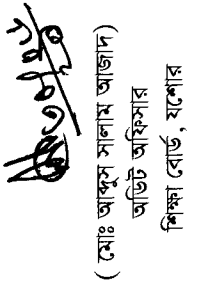 (মোঃ আব্দুস সালাম আজাদ)
অডিট অফিসার
শিক্ষা বোর্ড, যশোর